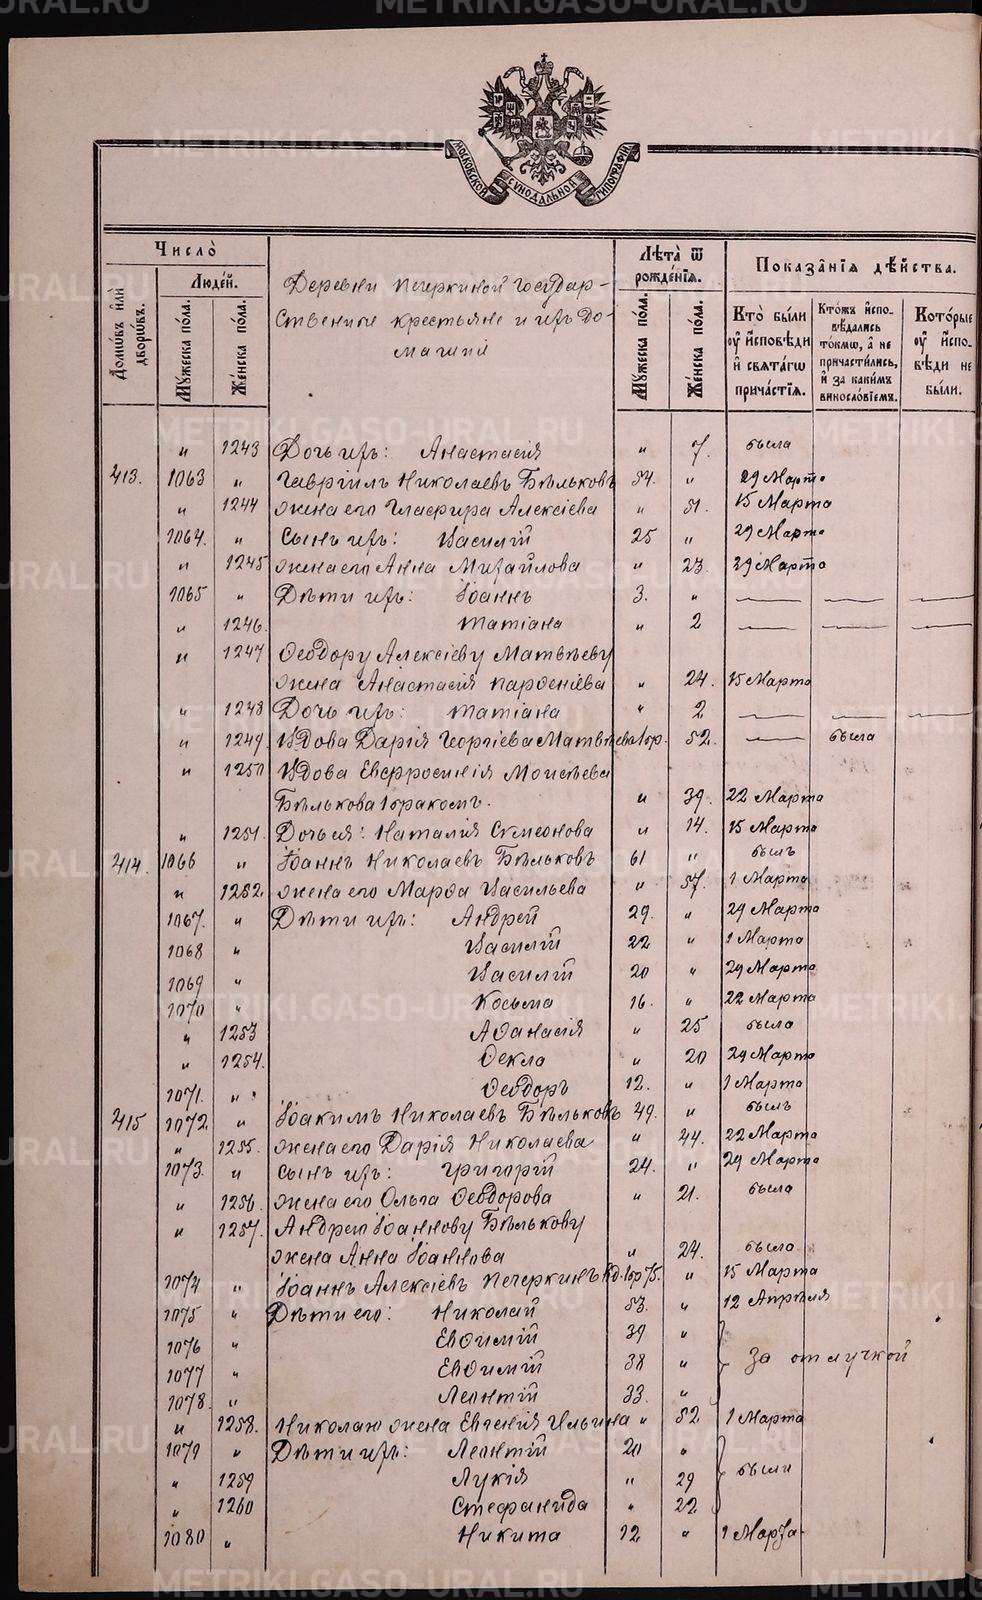 METRIKI.GASO-URAL.RU
МОСКОВСКОЙ СѴНОДАЛЬНОЙ ТИПОГРАФІИ
Число̀
Домѡвъ и҆лѝ дворѡвъ.
Люде́й.
Мꙋжеска по́ла.
Же́нска по́ла.
Деревни Печеркиной государ-
ственные крестьяне и ихъ до-
машніи
Лѣта̀ ѿ рожде́нїѧ.
Мꙋжеска по́ла.
Же́нска по́ла.
Показа̑нїѧ дѣ́йства.
Кто̀ бы́ли ᲂу҆ и҆сповѣди и҆ свѧта́гѡ прича́стїѧ.
Кто́жъ и҆спо-вѣдались то́кмѡ, а҆ не причасти́лись, и҆ за каки́мъ винослові́емъ.
Кото́рые ᲂу҆ и҆спо-вѣди не бы́ли.
" 1243 Дочь ихъ: Анастасія " 7. была
413. 1063 " Гавріилъ Николаевъ Бѣльковъ 54. " 29 Марта
" 1244 жена его Глафира Алексіева " 51. 15 Марта
1064. " Сынъ ихъ: Василій 25 " 29 Марта
" 1245 жена его Анна Михайлова " 23. 29 Марта
1065 " Дѣти ихъ: Іоаннъ 3. " — — —
" 1246. Татіана " 2 — — —
" 1247 Ѳеодору Алексіеву Матвѣеву
жена Анастасія Парѳеніева " 24. 15 Марта
" 1248 Дочь ихъ: Татіана " 2 — — —
" 1249. Вдова Дарія Георгіева Матвѣева 1 бр. 52. — была
" 1250 Вдова Евфросинія Моисѣева
Бѣлькова 1 бракомъ. " 39. 22 Марта
" 1251. Дочь ея: Наталія Сумеонова " 14. 15 Марта
414. 1066 " Іоаннъ Николаевъ Бѣльковъ 61 " былъ
" 1252. жена его Марѳа Васильева " 57. 1 Марта
1067. " Дѣти ихъ: Андрей 29. " 29 Марта
1068 " Василій 22 " 1 Марта
1069 " Василій 20 " 29 Марта
1070 " Косьма 16. " 22 Марта
" 1253 Аѳанасія " 25 была
" 1254. Ѳекла " 20 29 Марта
1071. " Ѳеодоръ 12. " 1 Марта
415 1072. " Іоакимъ Николаевъ Бѣльковъ 49. " былъ
" 1255. жена его Дарія Николаева " 44. 22 Марта
1073. " Сынъ ихъ: Григорій 24. " 29 Марта
" 1256. жена его Ольга Ѳеодорова " 21. была
" 1257. Андрею Іоаннову Бѣлькову
жена Анна Іоаннова " 24. была
1074 " Іоаннъ Алексіевъ Печеркинъ вд. 1 бр 75. " 15 Марта
1075 " Дѣти его: Николай 53. " 12 Апрѣля
1076 " Евѳимій 39 "
1077 " Евѳимій 38 " За отлучкой
1078. " Леонтій 33. "
" 1258. Николаю жена Евгенія Ильина " 52 1 Марта
1079 " Дѣти ихъ: Леонтій 20 "
" 1259 Лукія " 29 были
" 1260 Стефанида " 22
1080 " Никита 12 " 1 Марта